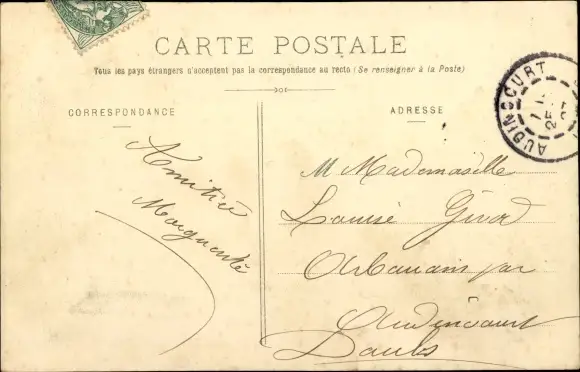 CARTE POSTALE
Tous les pays étrangers n'acceptent pas la correspondance au recto (Se renseigner à la Poste)
CORRESPONDANCE
ADRESSE
Amitié
Marguerite
M Mademoiselle
Louise Girod
Arbouans par
Audincourt
Doubs
AUDINCOURT